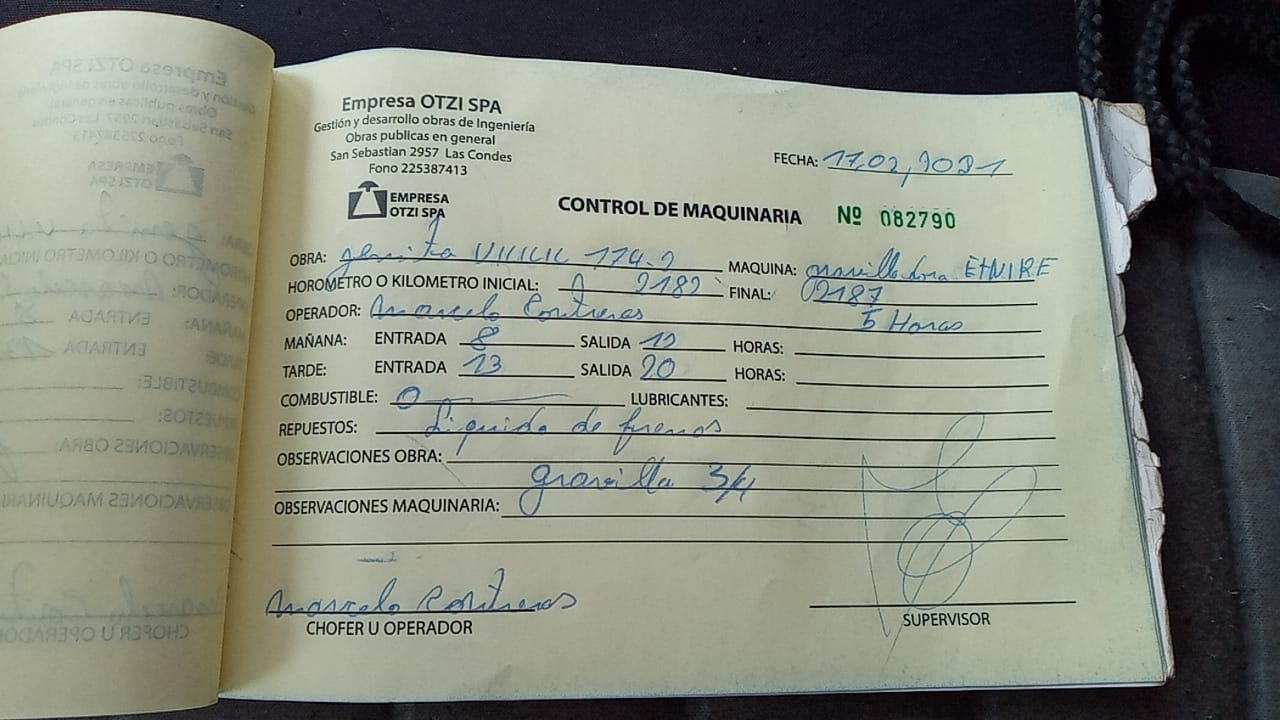 Empresa OTZI SPA
Gestión y desarrollo obras de Ingeniería
Obras publicas en general
San Sebastian 2957 Las Condes
Fono 225387413
EMPRESA
OTZI SPA
FECHA: 17.02,2021
CONTROL DE MAQUINARIA Nº 082790
OBRA: MAQUINA: ETNIRE
HOROMETRO O KILOMETRO INICIAL: 2182 FINAL: 02187
OPERADOR: Marcelo Contreras 5 Horas
MAÑANA: ENTRADA 8 SALIDA 12 HORAS:
TARDE: ENTRADA 13 SALIDA 20 HORAS:
COMBUSTIBLE: 0 LUBRICANTES:
REPUESTOS: Liquido de frenos
OBSERVACIONES OBRA:
gravilla 3/4
OBSERVACIONES MAQUINARIA:
Marcelo Contreras
CHOFER U OPERADOR
SUPERVISOR